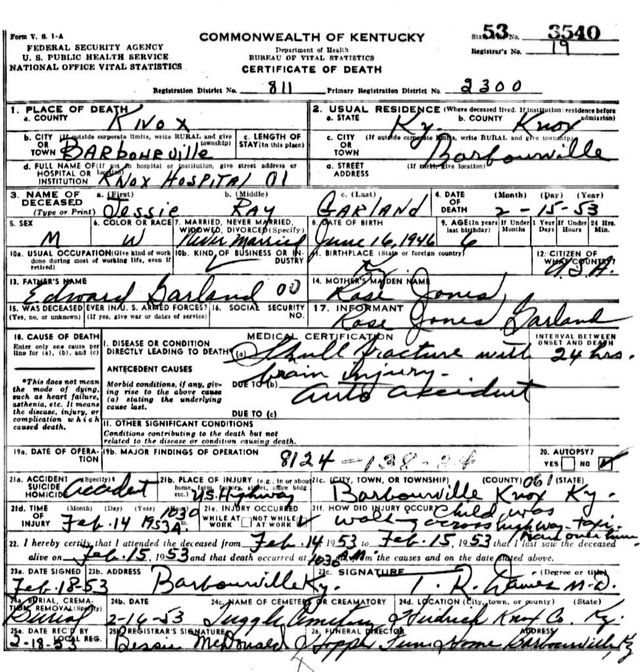 Form V. S. 1-A
FEDERAL SECURITY AGENCY
U. S. PUBLIC HEALTH SERVICE
NATIONAL OFFICE VITAL STATISTICS
COMMONWEALTH OF KENTUCKY
Department of Health
BUREAU OF VITAL STATISTICS
CERTIFICATE OF DEATH
53 3540
Registrar's No. 19
Registration District No. 811 Primary Registration District No. 2300
1. PLACE OF DEATH
a. COUNTY Knox
2. USUAL RESIDENCE (Where deceased lived. If institution: residence before admission)
a. STATE Ky. b. COUNTY Knox
b. CITY (If outside corporate limits, write RURAL and give township)
OR TOWN Barbourville
c. LENGTH OF STAY (in this place)
c. CITY (If outside corporate limits, write RURAL and give township)
OR TOWN Barbourville
d. FULL NAME OF (If not in hospital or institution, give street address or location)
HOSPITAL OR INSTITUTION Knox Hospital 01
d. STREET ADDRESS (If rural, give location)
3. NAME OF DECEASED (Type or Print)
a. (First) Jessie b. (Middle) Ray c. (Last) Garland
4. DATE OF DEATH (Month) (Day) (Year) 2-15-53
5. SEX M
6. COLOR OR RACE W
7. MARRIED, NEVER MARRIED, WIDOWED, DIVORCED (Specify) Never Married
8. DATE OF BIRTH June 16, 1946
9. AGE (In years last birthday) 6 If Under 1 If Under 24 Hrs.
10a. USUAL OCCUPATION (Give kind of work done during most of working life, even if retired)
10b. KIND OF BUSINESS OR INDUSTRY
11. BIRTHPLACE (State or foreign country) Ky
12. CITIZEN OF WHAT COUNTRY? U.S.A.
13. FATHER'S NAME Edward Garland 00
14. MOTHER'S MAIDEN NAME Rose Jones
15. WAS DECEASED EVER IN U. S. ARMED FORCES? (Yes, no, or unknown) (If yes, give war or dates of service)
16. SOCIAL SECURITY NO.
17. INFORMANT Rose Jones Garland
18. CAUSE OF DEATH
Enter only one cause per line for (a), (b), and (c)
*This does not mean the mode of dying, such as heart failure, asthenia, etc. It means the disease, injury, or complication which caused death.
MEDICAL CERTIFICATION
INTERVAL BETWEEN ONSET AND DEATH
I. DISEASE OR CONDITION DIRECTLY LEADING TO DEATH* (a) Skull fracture with brain injury. 24 hrs.
ANTECEDENT CAUSES
Morbid conditions, if any, giving rise to the above cause (a) stating the underlying cause last.
DUE TO (b) auto accident
DUE TO (c)
II. OTHER SIGNIFICANT CONDITIONS
Conditions contributing to the death but not related to the disease or condition causing death.
19a. DATE OF OPERATION
19b. MAJOR FINDINGS OF OPERATION
8124-138-24
20. AUTOPSY? YES NO
21a. ACCIDENT SUICIDE HOMICIDE (Specify) Accident
21b. PLACE OF INJURY (e.g., in or about home, farm, factory, street, office bldg., etc.) U.S. Highway
21c. (CITY, TOWN, OR TOWNSHIP) (COUNTY) (STATE) 061
Barbourville Knox Ky.
21d. TIME OF INJURY (Month) (Day) (Year) Feb. 14 1953 1030 A.
21e. INJURY OCCURRED WHILE AT WORK NOT WHILE AT WORK
21f. HOW DID INJURY OCCUR? Child was walking across highway - taxi ran over him
22. I hereby certify that I attended the deceased from Feb. 14 1953 to Feb. 15, 1953 that I last saw the deceased
alive on Feb. 15, 1953 and that death occurred at 1030 A.M. from the causes and on the date stated above.
23a. DATE SIGNED Feb. 18-53
23b. ADDRESS Barbourville Ky.
23c. SIGNATURE (Degree or title) T. R. Davies M.D.
24a. BURIAL, CREMATION, REMOVAL (Specify) Burial
24b. DATE 2-16-53
24c. NAME OF CEMETERY OR CREMATORY Tuggle Cemetery
24d. LOCATION (City, town, or county) (State) Knox Co. Ky.
25a. DATE REC'D BY LOCAL REG. 2-18-53
25b. REGISTRAR'S SIGNATURE Bessie McDonald
26. FUNERAL DIRECTOR ADDRESS Hopper Fun. Home Barbourville, Ky